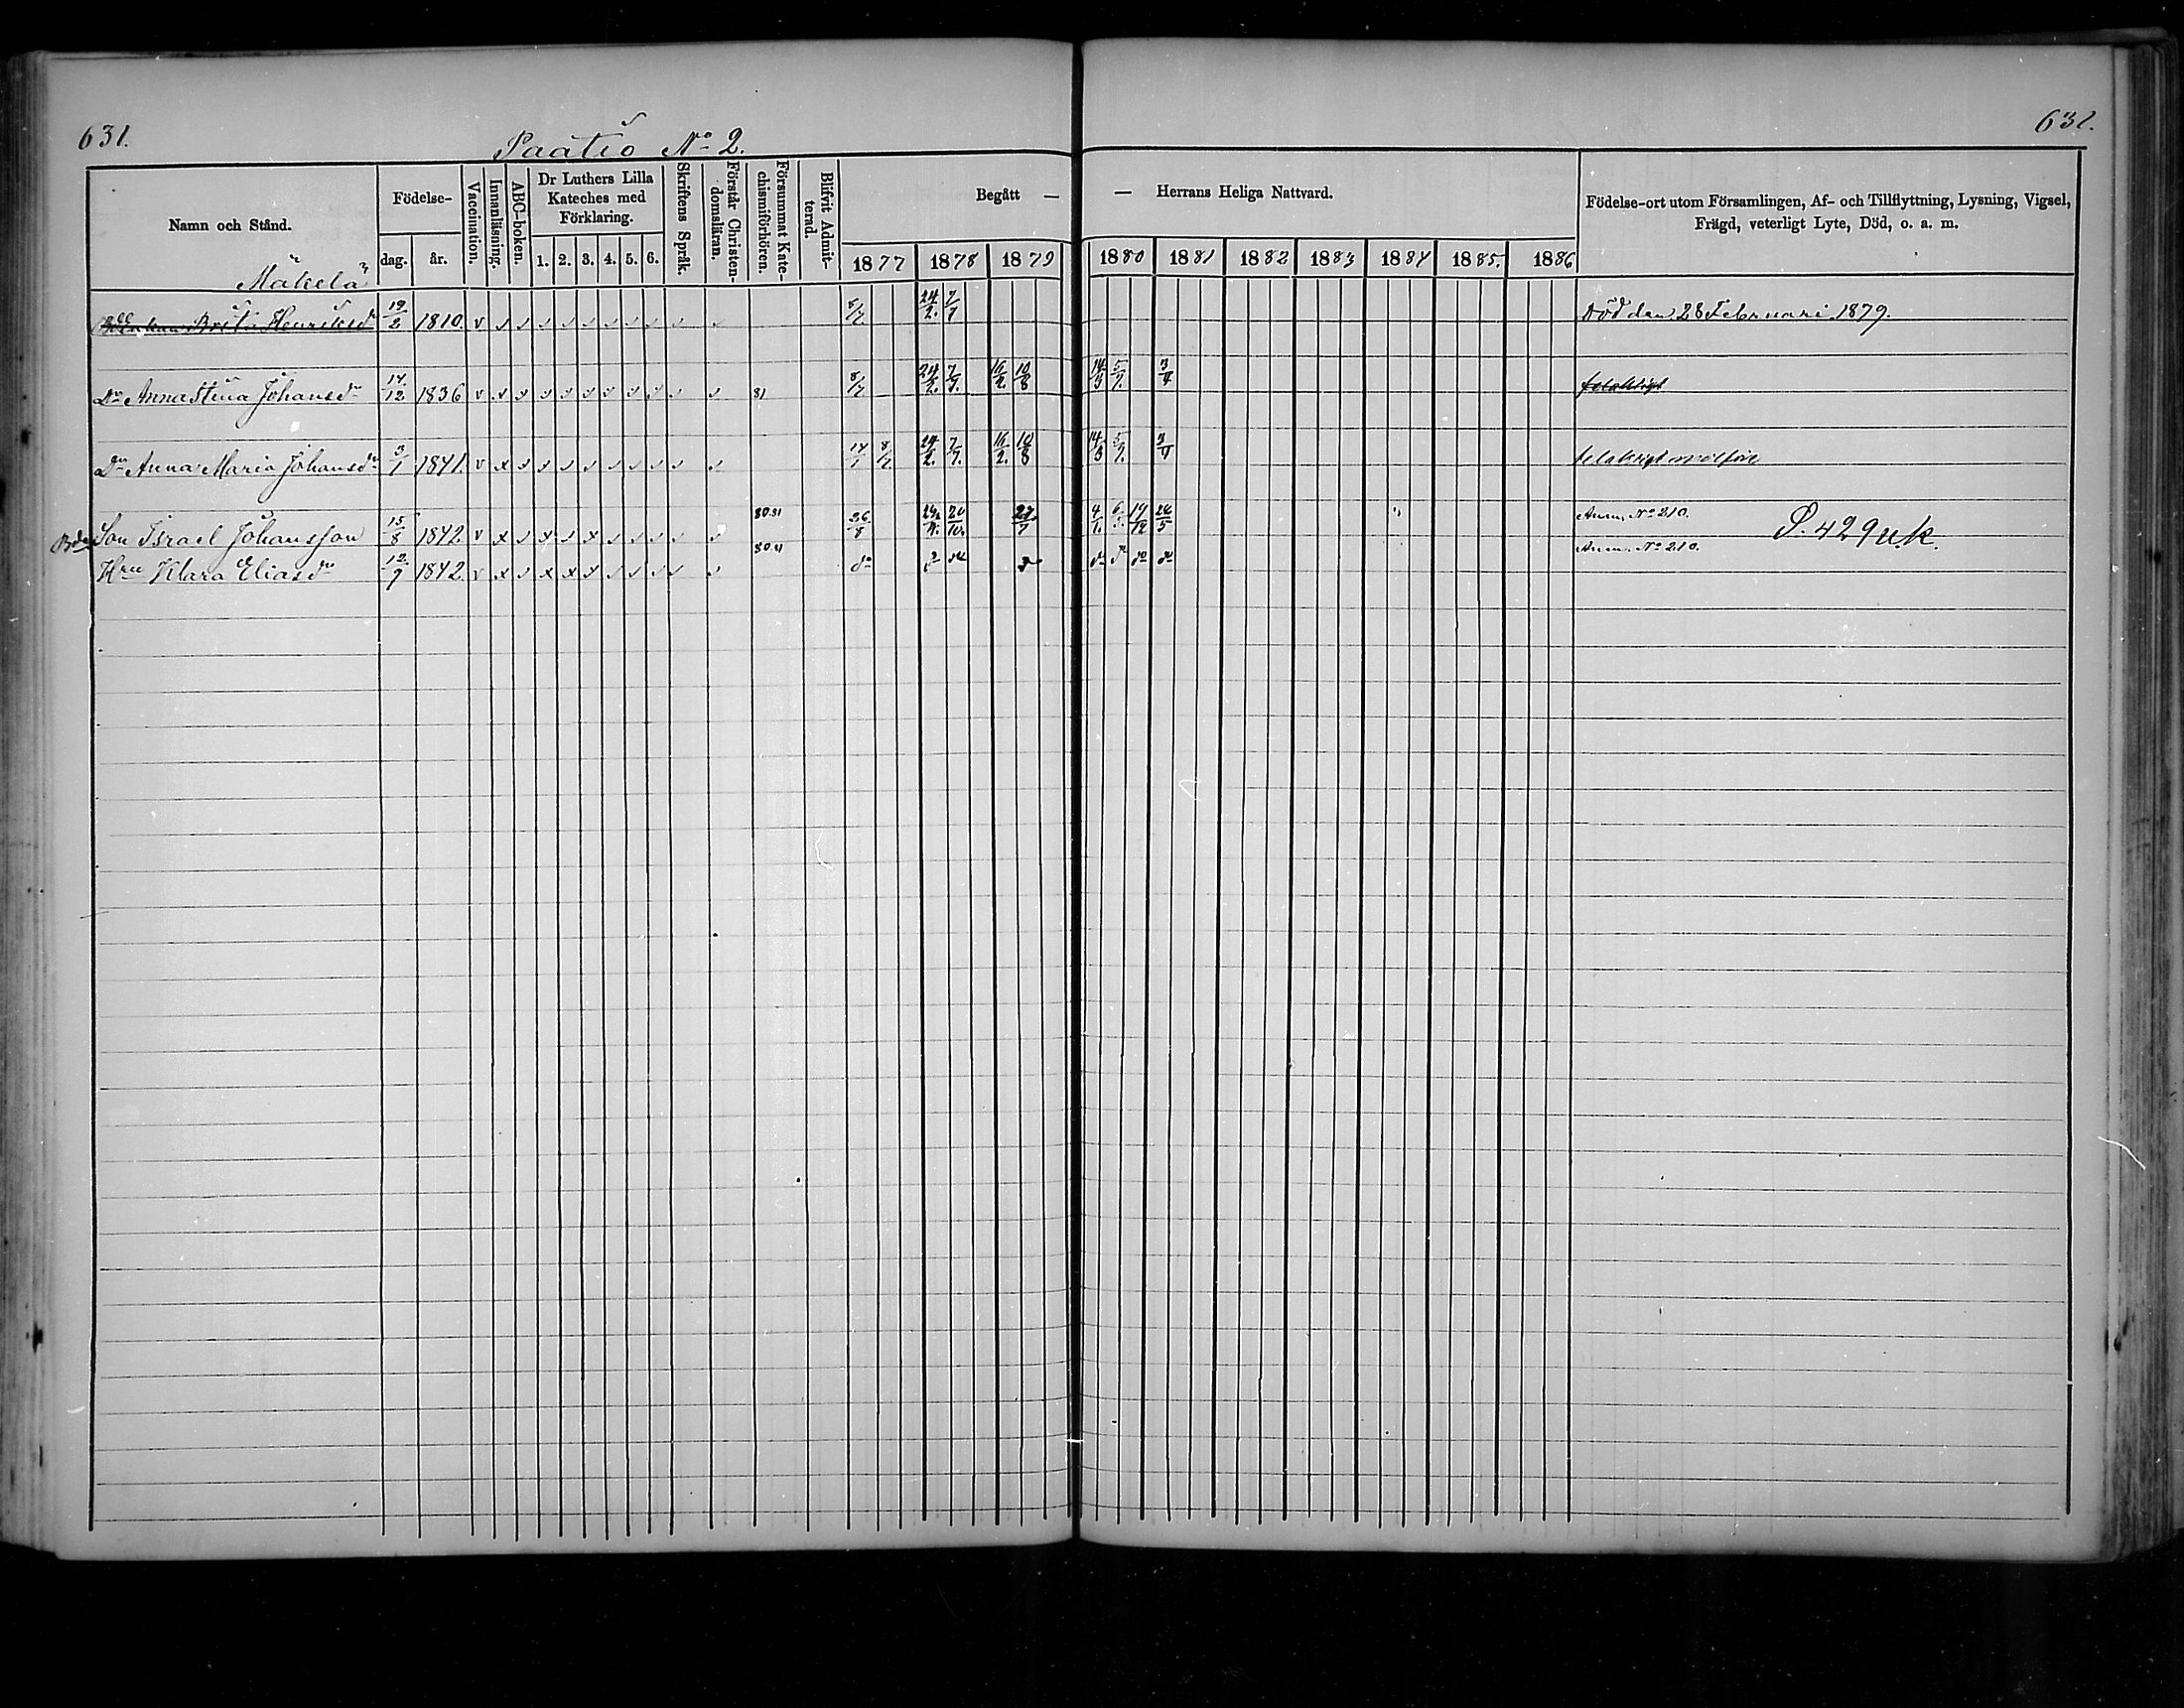 631.
Paatio No 2.
631.
Namn och Stånd.
Födelse-
dag.
år.
Vaccination.
Innanläsning.
ABC-boken.
Dr Luthers Lilla
Kateches med
Förklaring.
1. 2. 3. 4. 5. 6.
Skriftens Språk.
Förstår Christen-
domsläran.
Försummat Kate-
chismiförhören.
Blifvit Admit-
terad.
Begått —
— Herrans Heliga Nattvard.
1877 1878 1879 1880 1881 1882 1883 1884 1885. 1886
Födelse-ort utom Församlingen, Af- och Tillflyttning, Lysning, Vigsel,
Frägd, veterligt Lyte, Död, o. a. m.
Mäkelä
Brita Henriksdr 19/2 1810. 8/7. 24/2. 7/7 Död den 28 Februari 1879.
Dr Anna Stina Johansdr 14/12 1836 81 8/7 24/2. 7/7. 16/2. 10/8 14/3 5/9. 3/4
Dr Anna Maria Johansdr 3/1 1841. 14/1 8/7 24/2. 7/7. 16/2. 10/8 14/3 5/9. 3/4
Son Israel Johansson 15/8 1842 80.81 26/8 20/10. 27/7 4/1. 19/12 26/5 Anm. No 210. P. 429 u.k.
Hru Klara Eliasdr 12/9 1842. 80.81 do do do do do do Anm. No 210.